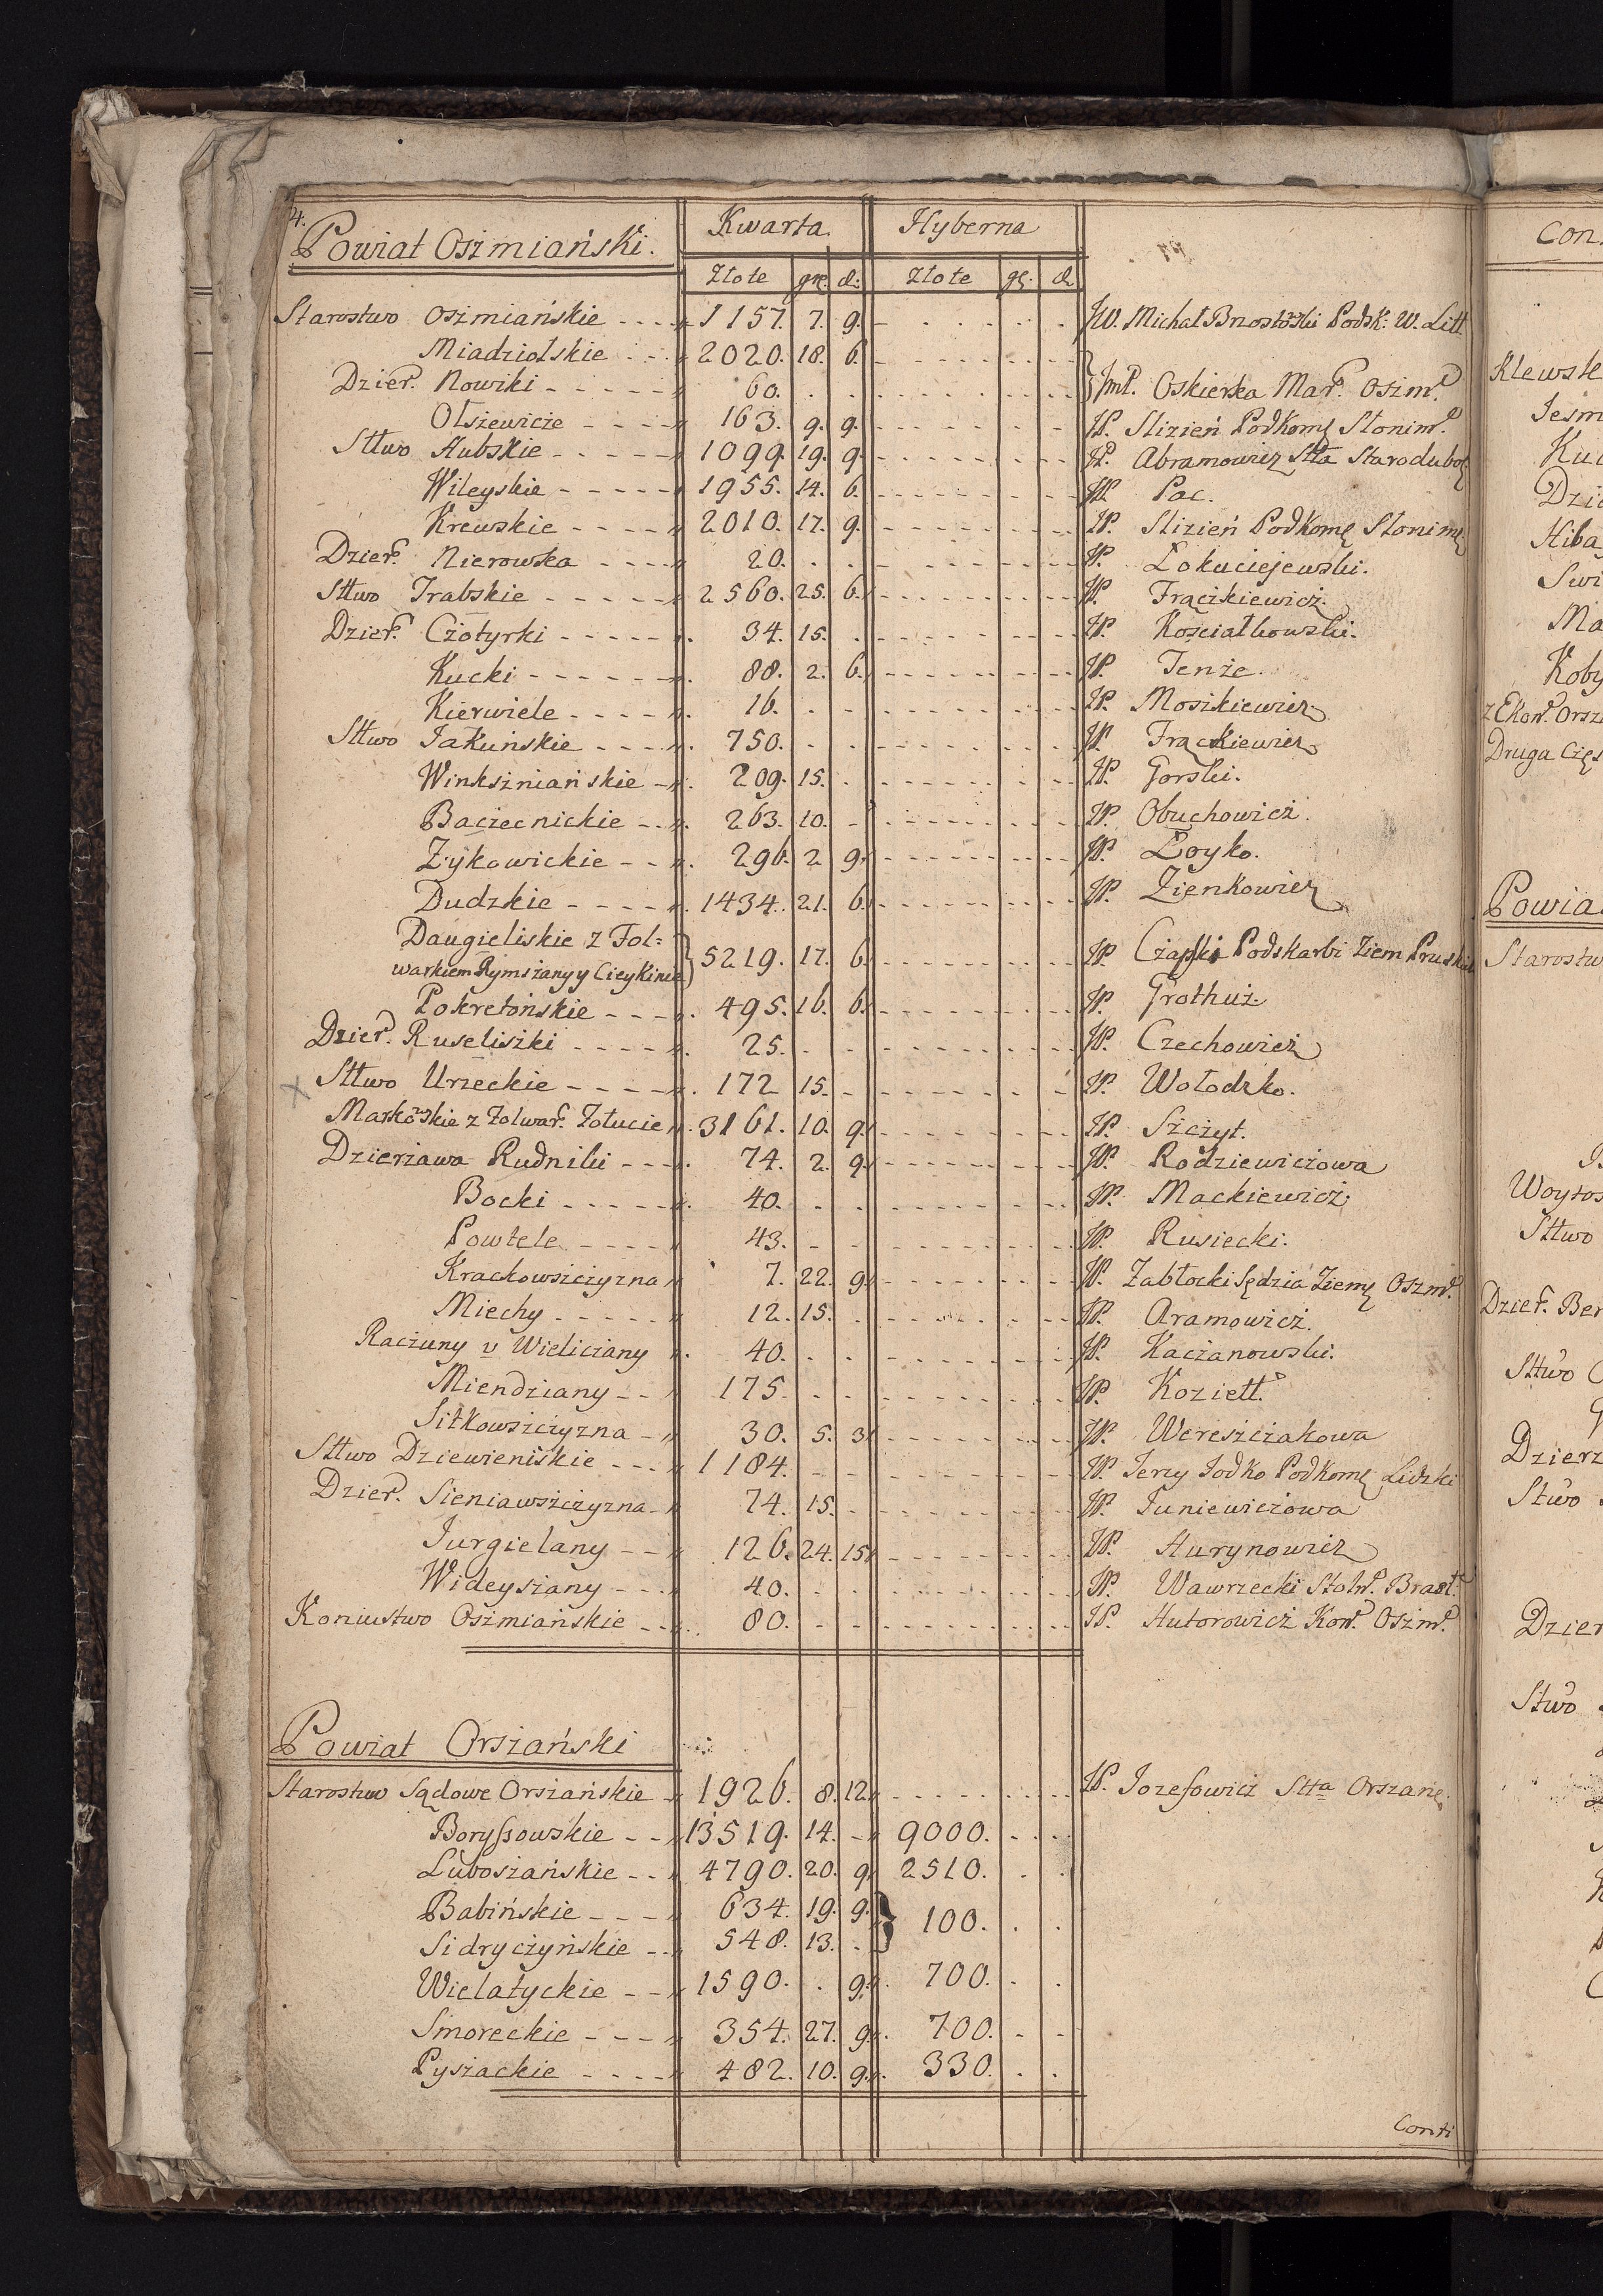 4.
Powiat Oszmiański. Kwarta. Hyberna
Złote gr. d: Złote gr. d.
Starostwo Oszmiańskie 1157. 7. 9. JW. Michał Brzostowski Podsk: W. Litt
Miadziolskie 2020. 18. 6.
Dzierż. Nowiki 60. JmP. Oskierka Mar. Oszm.
Olszewicze 163. 9. 9. JP. Slizień Podkomę Słonim.
Sttwo Hubskie 1099. 19. 9. JP. Abramowicz Stta Starodubo
Wileyskie 1955. 14. 6. JP. Pac.
Krewskie 2010. 17. 9. JP. Slizień Podkomę Słonimę
Dzier. Nierowska 20. JP. Łokuciejewski.
Sttwo Trabskie 2560. 25. 6. JP. Frączkiewicz.
Dzier. Czotyrki 34. 15. JP. Kosciałkowski.
Kucki 88. 2. 6. JP. Tenże.
Kierwiele 16. JP. Moszkiewicz
Sttwo Jakuńskie 750. JP. Frąckiewicz
Winkszniańskie 209. 15. JP. Gorski.
Baczecnickie 263. 10. JP. Obuchowicz.
Zykowickie 296. 2 9. JP. Łoyko.
Dudzkie 1434. 21. 6. JP. Zienkowicz
Daugieliskie z Fol=
warkiem Rymszany y Cieykinie 5219. 17. 6. JP. Czapski Podskarbi Ziem Pruskich
Pokretońskie 495. 16. 6. JP. Grothuz.
Dzier. Ruseliszki 25. JP. Czechowicz
x Sttwo Urzeckie 172 15. JP. Wołodzko.
Markowskie z Folwar. Zołucie 3161. 10. 9. JP. Szczyt.
Dzierzawa Rudniki 74. 2. 9. JP. Rodziewiczowa
Bocki 40. JP. Mackiewicz
Powtele 43. JP. Rusiecki.
Krackowszczyzna 7. 22. 9. JP. Zabłocki Sędzia Ziemę Oszm.
Miechy 12. 15. JP. Aramowicz.
Raczuny v Wieliczany 40. JP. Kaczanowski.
Miendziany 175. JP. Koziełł.
Sitkowszczyzna 30. 5. 3 JP. Wereszczakowa
Sttwo Dziewieniskie 1184. JP. Jerzy Jodko Podkomę Lidzki
Dzier. Sieniawszczyzna 74. 15. JP. Juniewiczowa
Jurgielany 126. 24. 15 JP. Hurynowicz
Wideyszany 40. JP. Wawrzecki Stoln. Brasł.
Koniustwo Oszmiańskie 80. JP. Hutorowicz Kon. Oszm.
Powiat Orszański
Starostwo Sądowe Orszańskie 1926. 8. 12. JP. Jozefowicz Stta Orszanę.
Boryssowskie 13519. 14. 9000.
Luboszańskie 4790. 20. 9. 2510.
Babińskie 634. 19. 9. 100.
Sidryczyńskie 548. 13.
Wielatyckie 1590. 9. 700.
Smoreckie 354. 27. 9. 700.
Pyszackie 482. 10. 9. 330.
Conti
Con
Klewsk
Jesm
Kuc
Dzie
Hiba
Swi
Ma
Koby
z Ekon. Orsz
Druga Częs
Powia
Starostw
Woytos
Sttwo
Dzier. Ber
Sttwo
Dzierz
Stwo
Dzier
Stwo